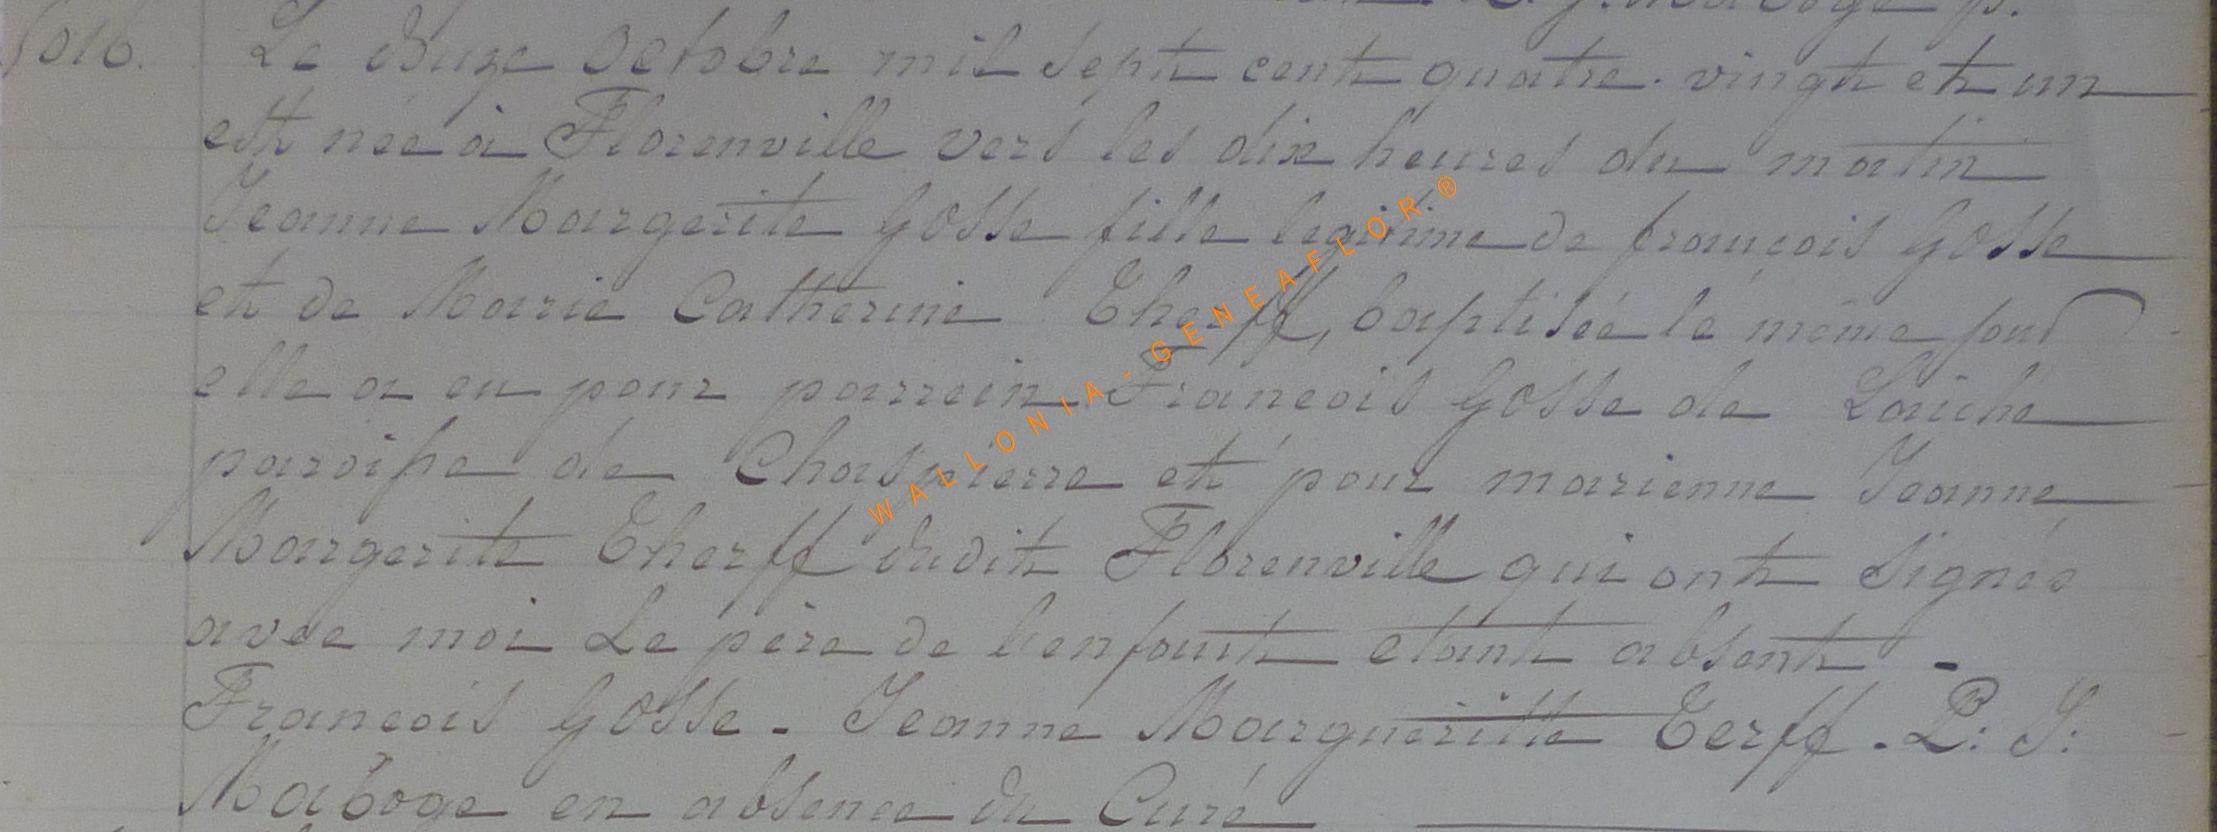 5016. Le douze Octobre mil sept cent quatre-vingt et un
est née à Florenville vers les dix heures du matin
Jeanne Margerite Gosse fille legitime de françois Gosse
et de Marie Catherine Therff, baptisée le même jour
elle a eu pour parrein Francois Gosse de Laiche
paroisse de Chaspierre et pour marienne Jeanne
Margerite Therff dudit Florenville qui ont signés
avec moi Le père de l'enfant etant absent -
Francois Gosse - Jeanne Margueritte Terff - P: J:
Maboge en absence du Curé
WALLONIA-GENEAFLOR®